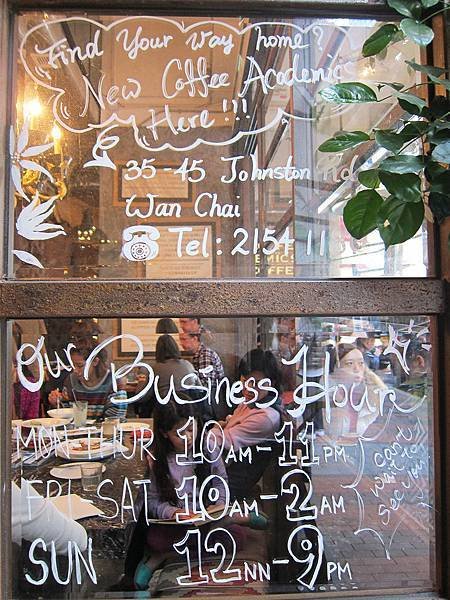 Find Your way home?
New Coffee Academics
Here!!!
35-45 Johnston Rd
Wan Chai
Tel: 2154 11
Our Business Hour
MON-THUR 10AM-11PM
FRI-SAT 10AM-2AM
SUN 12NN-9PM
can't
wait to
see you!